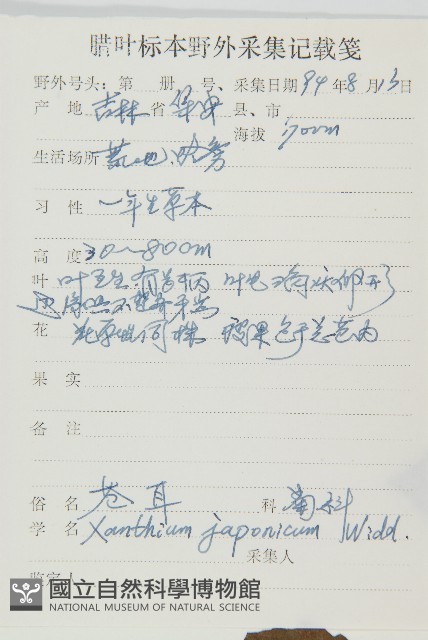 腊叶标本野外采集记载笺
野外号头：第 册 号、采集日期 94 年 8 月 13 日
产 地 吉林 省 集安 县、市
海拔 700m
生活场所 荒地、路旁
习 性 一年生草本
高 度 30~800m
叶 叶互生有长柄 叶 卵形
边缘 不整齐
花 花 同株 总苞内
果 实
备 注
俗 名 苍耳 科 菊科
学 名 Xanthium japonicum Widd.
采集人
鉴定人
國立自然科學博物館
NATIONAL MUSEUM OF NATURAL SCIENCE